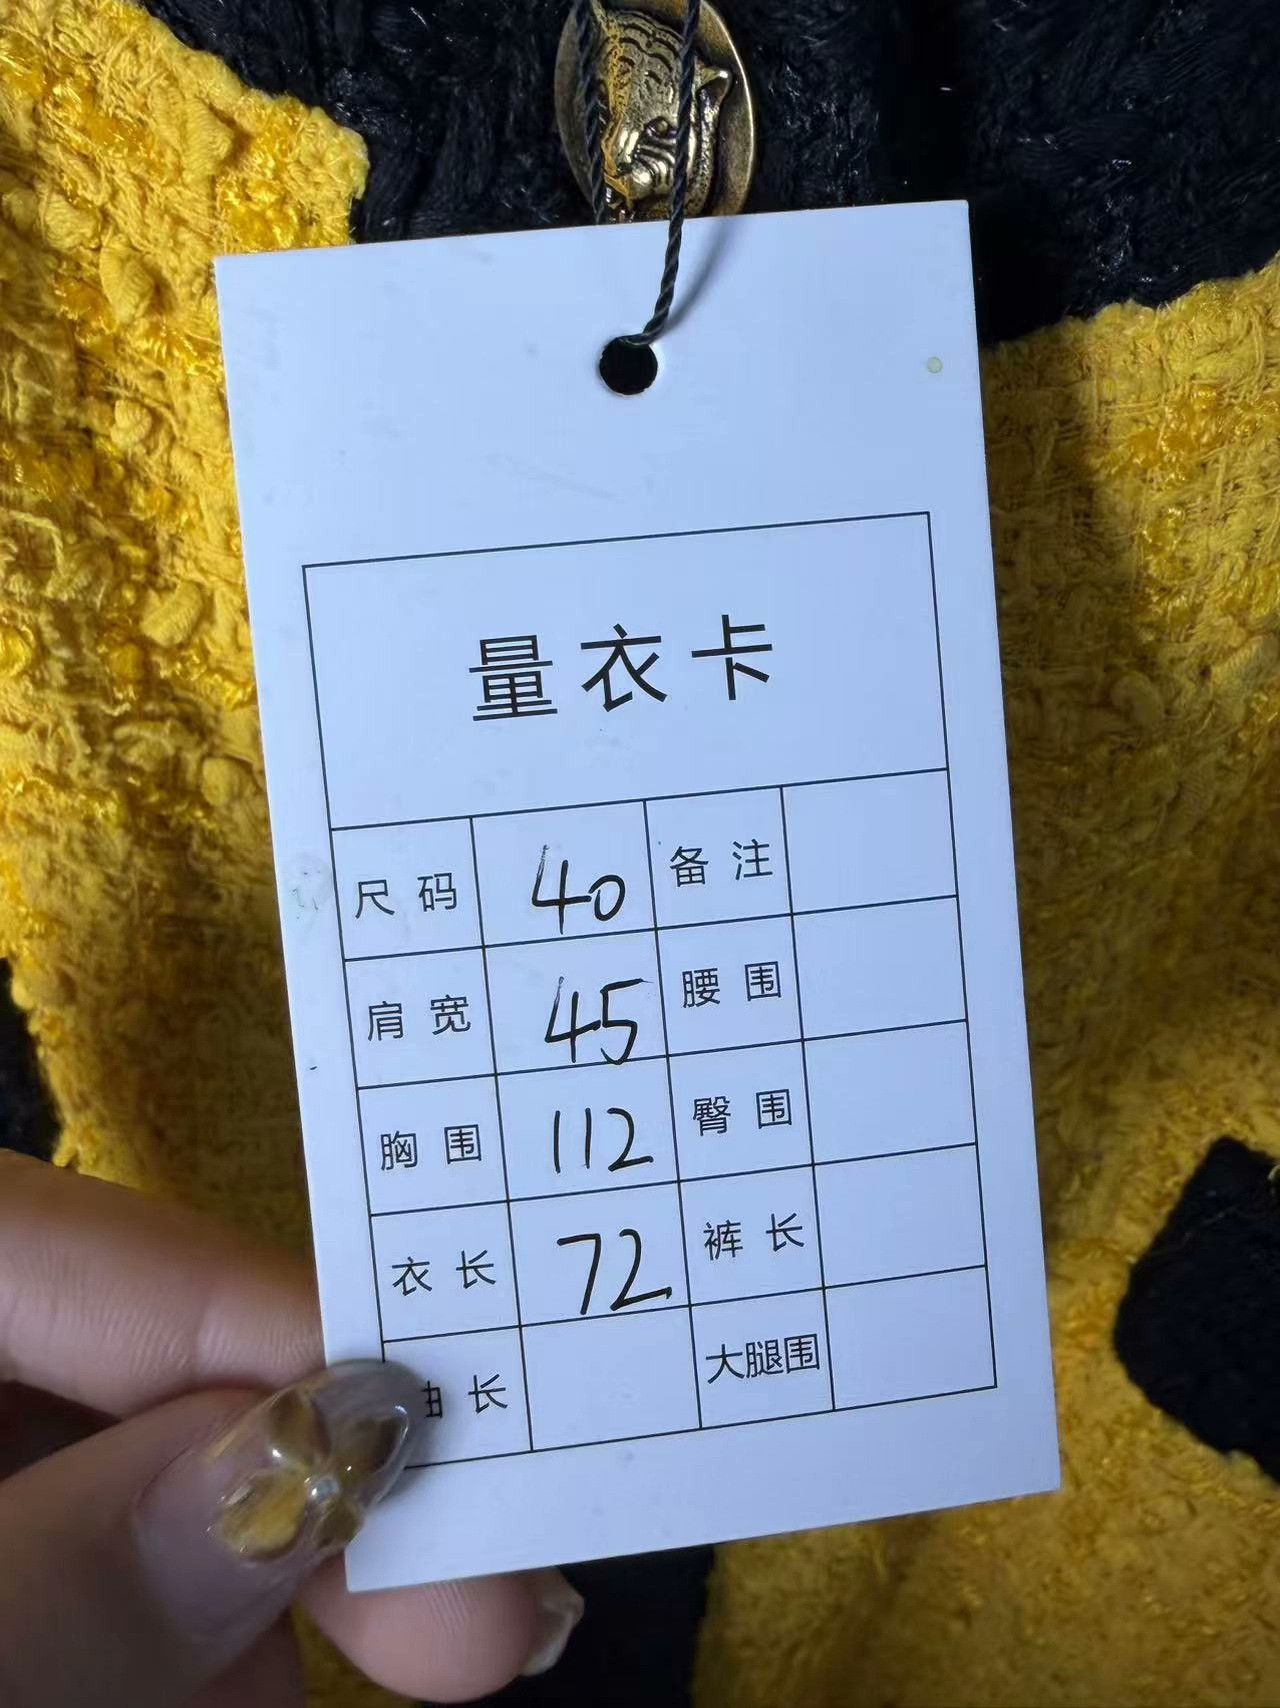 量衣卡
尺码 40 备注
肩宽 45 腰围
胸围 112 臀围
衣长 72 裤长
长 大腿围